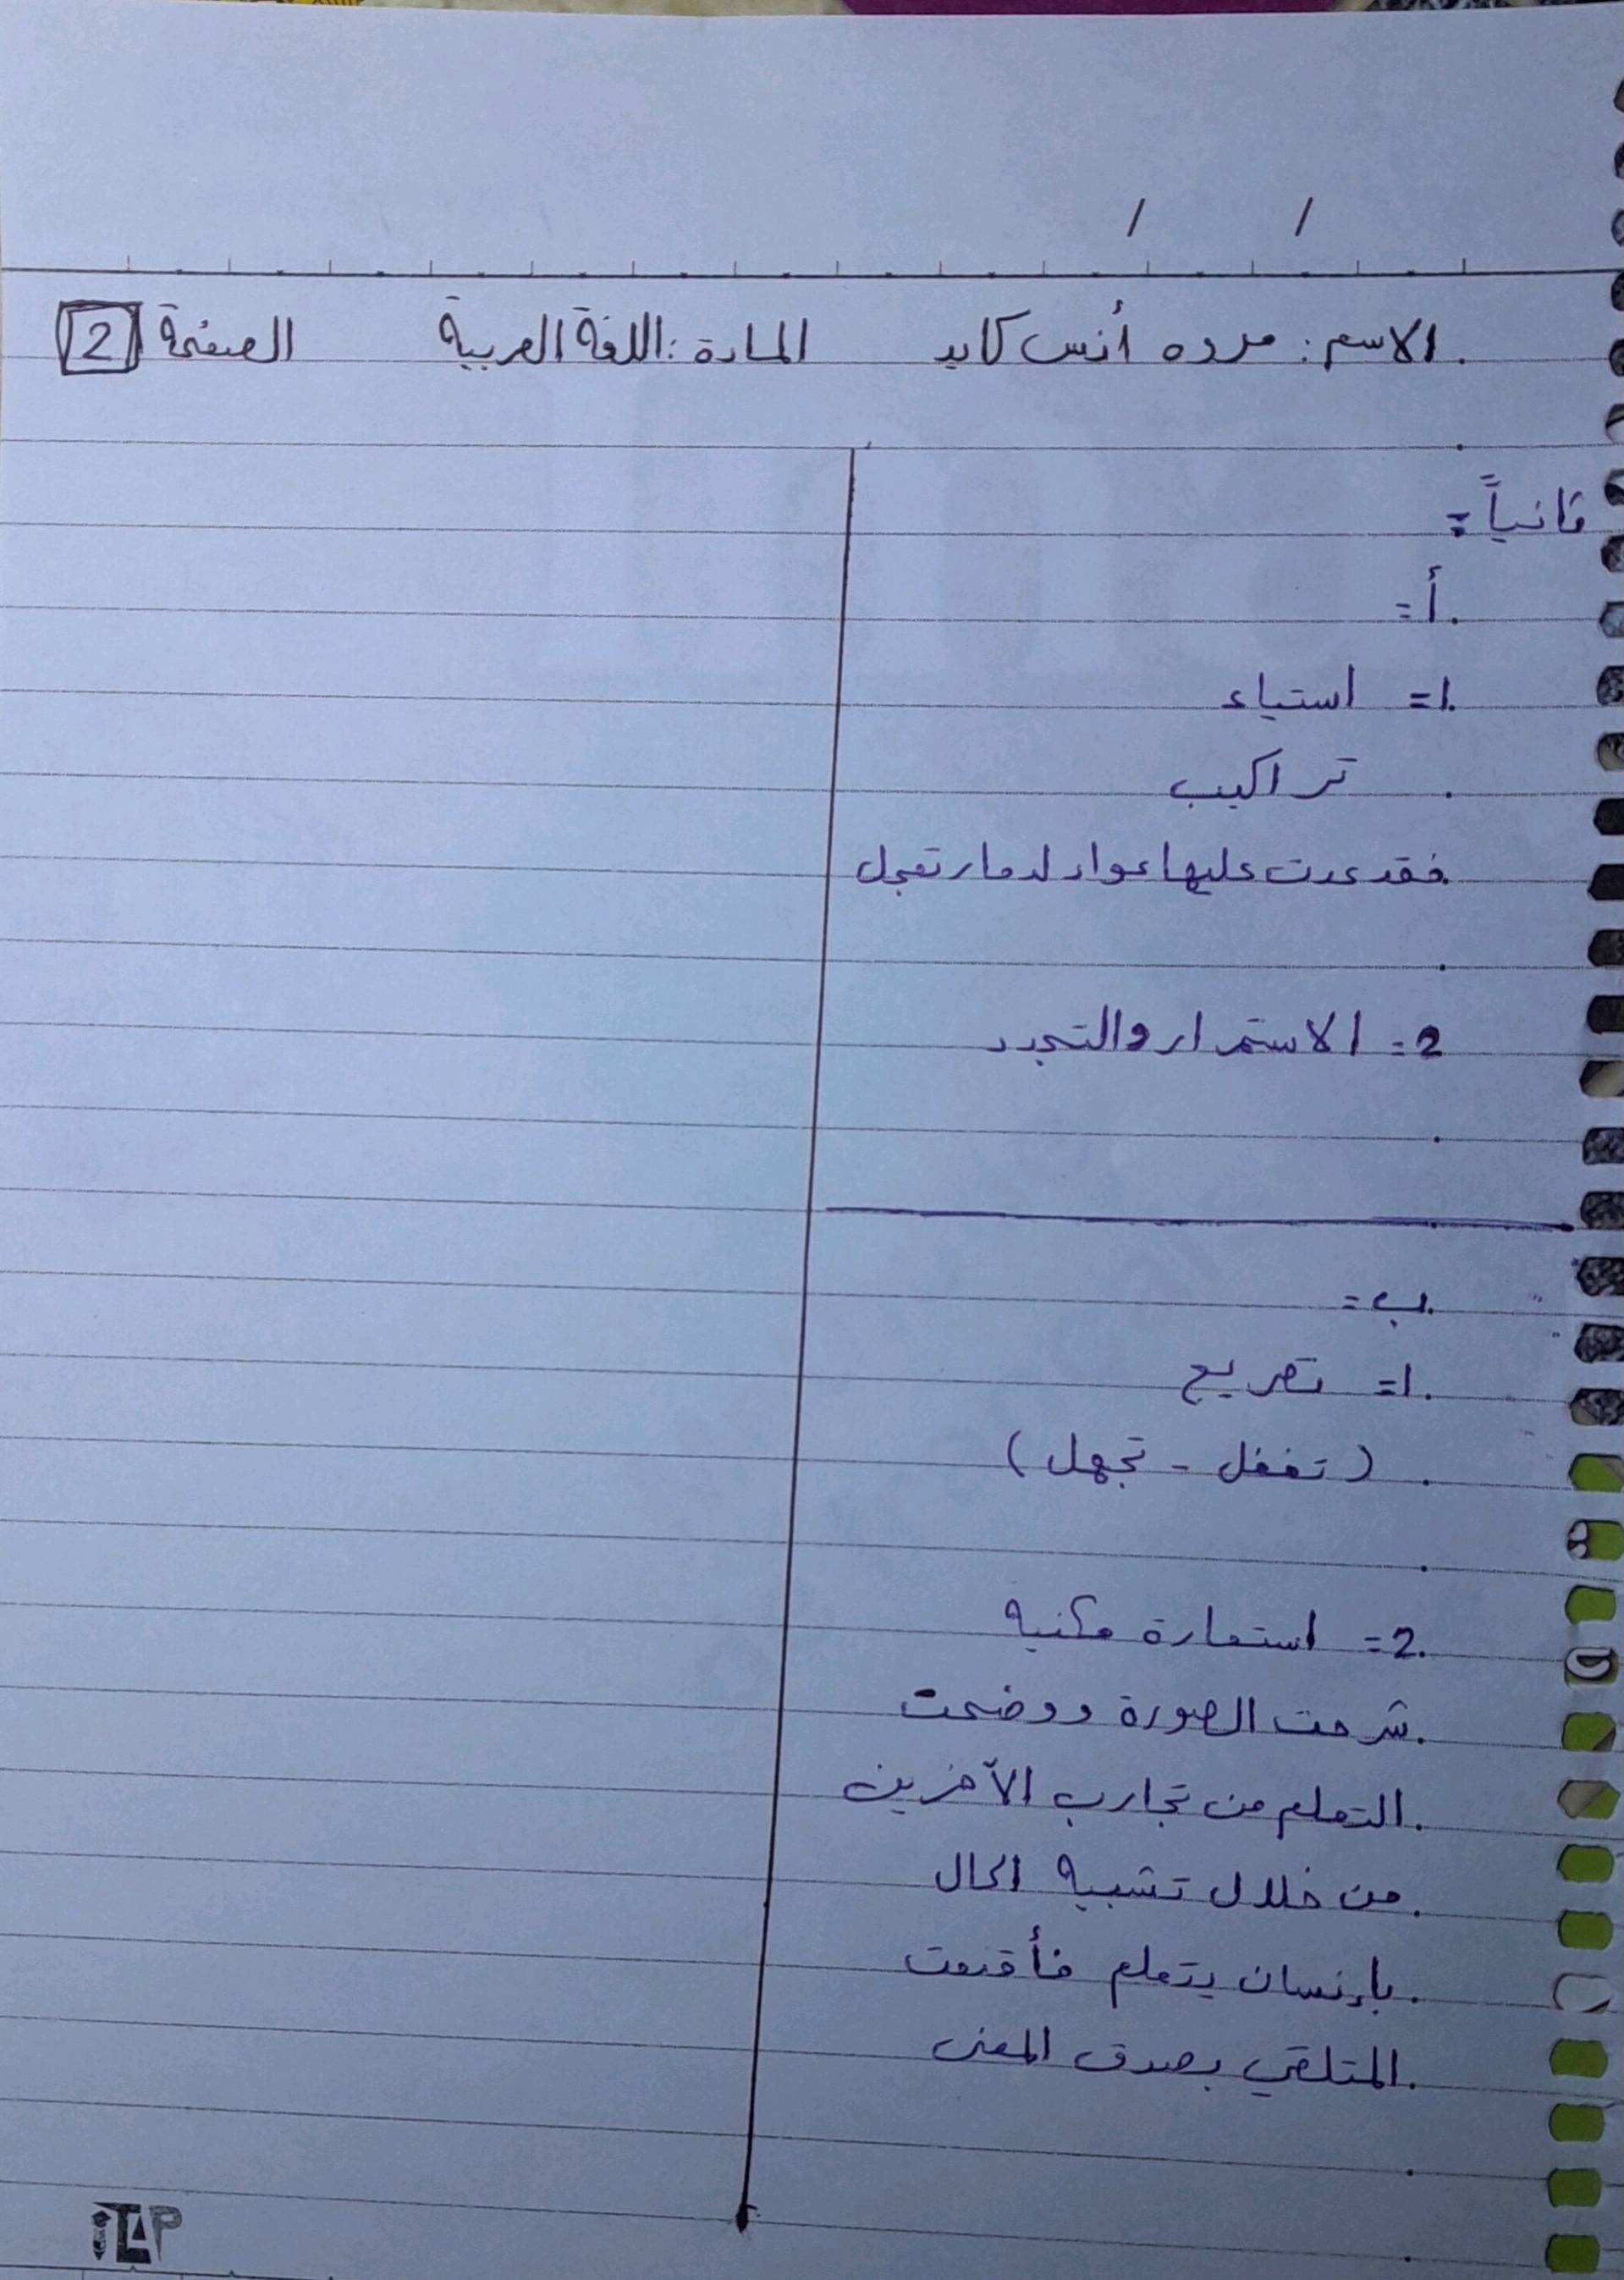 الاسم: مروه أنس كايد المادة: اللغة العربية الصفحة 2
ثانياً =
أ =
1= استياء
تراكيب
فقد عدت عليها عواد لدمار تعجل
2= الاستمرار والتجدد
ب =
1= تصريع
(تغفل - تجهل)
2= استعارة مكنية
شرحت الصورة ووضحت
التعلم من تجارب الآخرين
من خلال تشبيه الحال
بإنسان يتعلم فأقنعت
المتلقي بصدق المعنى
iTAP